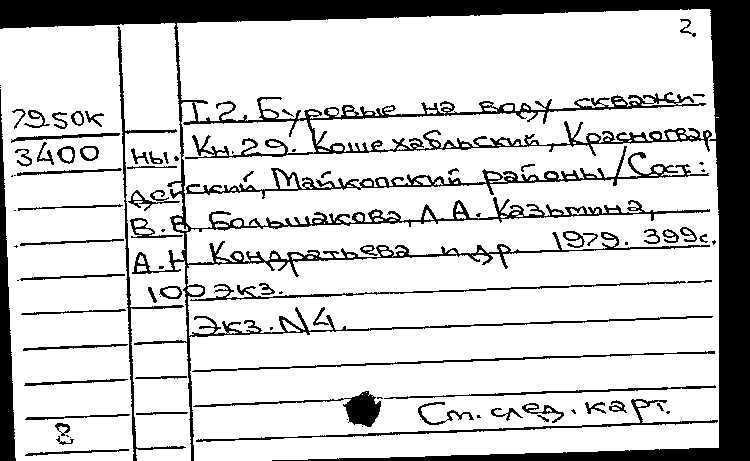 2.
79.50К
3400
Т.2. Буровые на воду скважи-
ны. Кн.29. Кошехабльский, Красногвар
дейский, Майкопский районы/Сост:
В.В. Большакова, Л.А. Казьмина,
А.Н Кондратьева и др. 1979. 399с.
100экз.
Экз.N4.
См. след. карт.
8